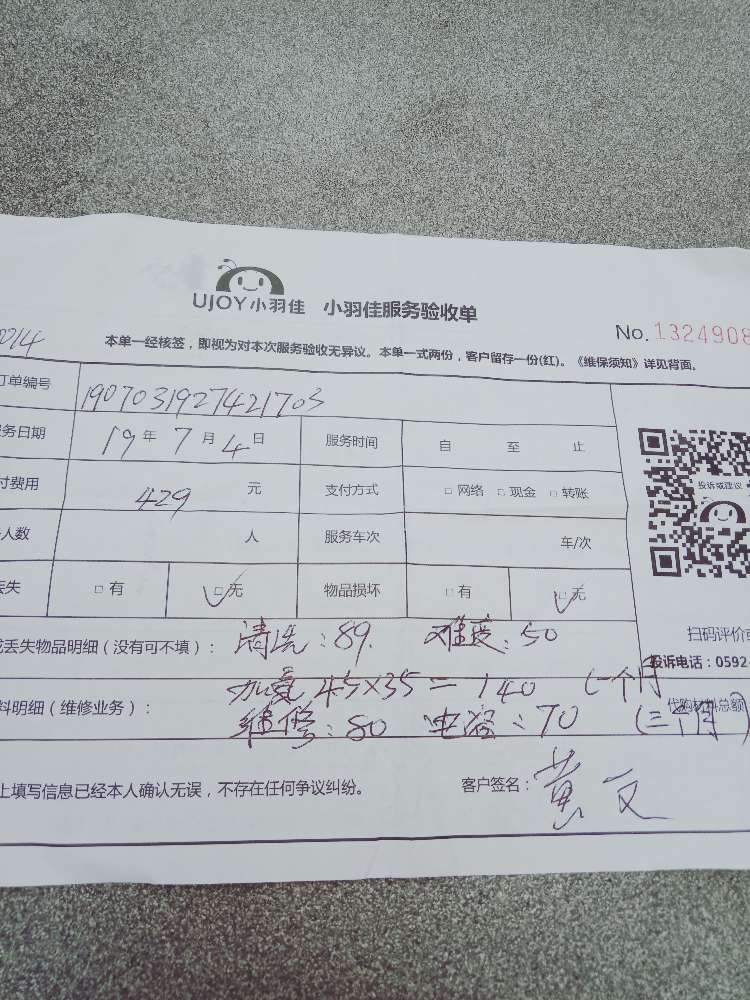 UJOY小羽佳 小羽佳服务验收单
No. 1324908
本单一经核签，即视为对本次服务验收无异议。本单一式两份，客户留存一份(红)。《维保须知》详见背面。
订单编号 1907031927421703
务日期 19年7月4日 服务时间 自 至 止
付费用 429 元 支付方式 □网络 □现金 □转账
人数 人 服务车次 车/次
丢失 □有 □无 物品损坏 □有 □无
投诉或建议
扫码评价或
投诉电话：0592-
或丢失物品明细（没有可不填）： 清洗：89. 难度：50
加氟 45×35=140 (一个月
料明细（维修业务）： 维修：80 电容：70 (三个月)
代购材料总额
上填写信息已经本人确认无误，不存在任何争议纠纷。 客户签名：黄文